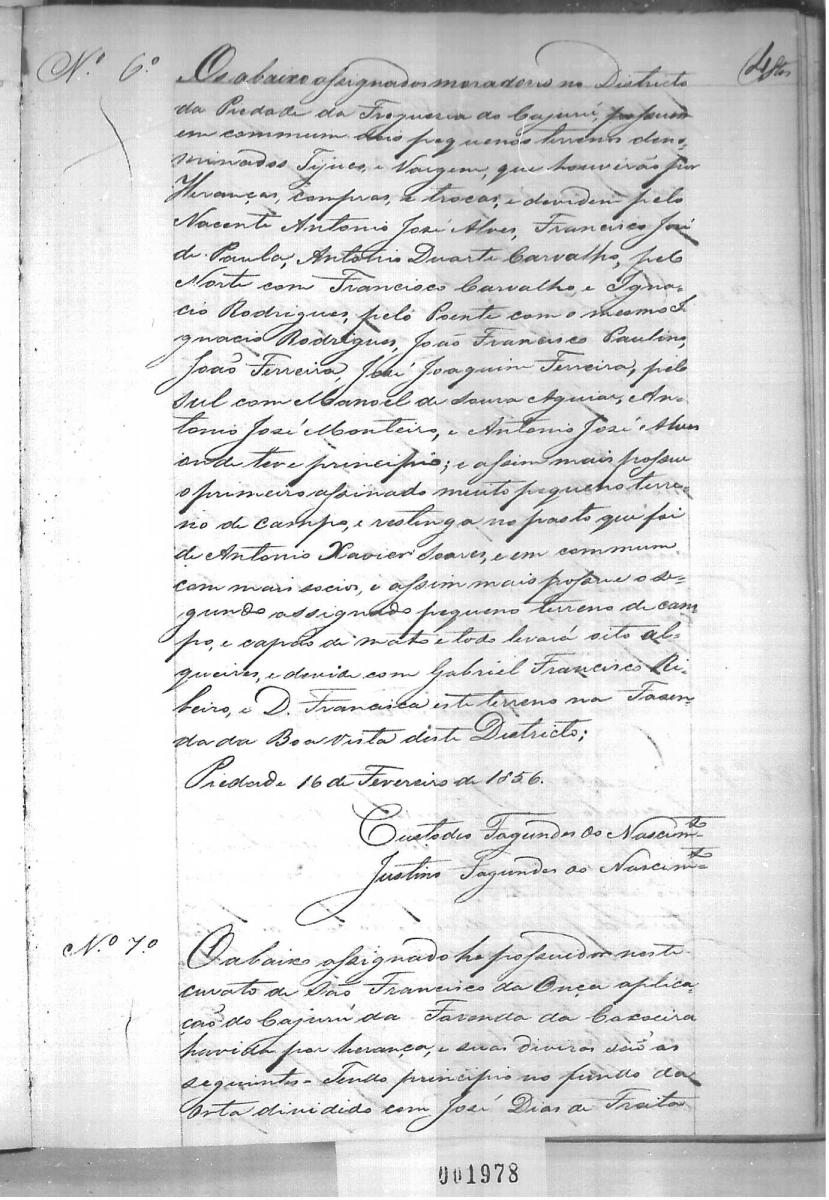 Nº 6º
Os abaixo assignados moradores no Districto
da Piedade da Freguesia do Cajurú, possuem
em commum dois pequenos terrenos deno-
minados Tijuco, e Vargem, que houverão por
Heranças, compras, e trocas, e devidem pelo
Nacente Antonio José Alves, Francisco José
de Paula, Antonio Duarte Carvalho, pelo
Norte com Francisco Carvalho e Igna-
cio Rodrigues, pelo Poente com o mesmo I-
gnacio Rodrigues, João Francisco Paulino,
João Ferreira, José Joaquim Ferreira, pelo
Sul com Manoel de Soura Aguiar, e An-
tonio José Monteiro, e Antonio José Alves
onde teve principio; e assim mais possue
o primeiro assinado muito pequeno terre-
no de campo, e restinga no pasto que foi
de Antonio Xavier Soares, e em commum
com mais socios, e assim mais possue o se-
gundo assignado pequeno terreno de cam
po, e capão de mato e todo levará oito al-
queires, e devide com Gabriel Francisco Ri-
beiro, e D. Francisca este terreno na Fasen-
da da Boa Vista deste Districto;
Piedade 16 de Fevereiro de 1856.
Custodio Fagundes do Nascimto
Justino Fagundes do Nascimto
Nº 7º
O abaixo assignado he possuidor neste
curato de São Francisco da Onça aplica-
ção do Cajurú da Fazenda da Caxoeira
havida por herança, e suas divizas são as
seguintes - Tendo principio no fundo da
orta dividido com José Dias de Freitas
001978